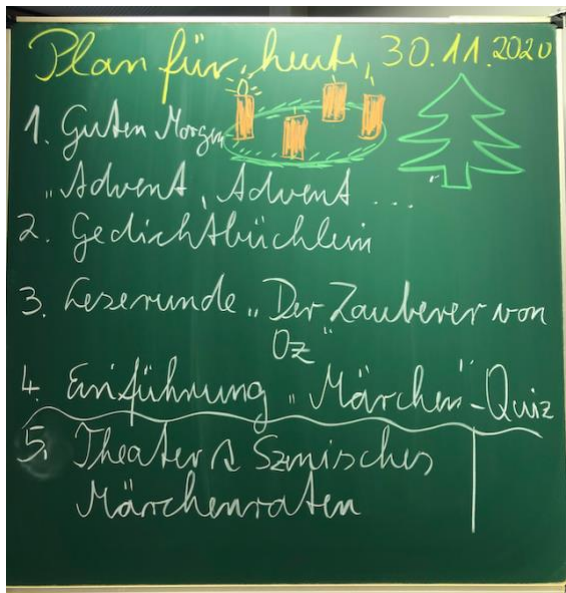 Plan für heute, 30.11.2020
1. Guten Morgen
„Advent, Advent ...“
2. Gedichtbüchlein
3. Leserunde „Der Zauberer von
Oz“
4. Einführung „Märchen“-Quiz
5. Theater Szenisches
Märchenraten